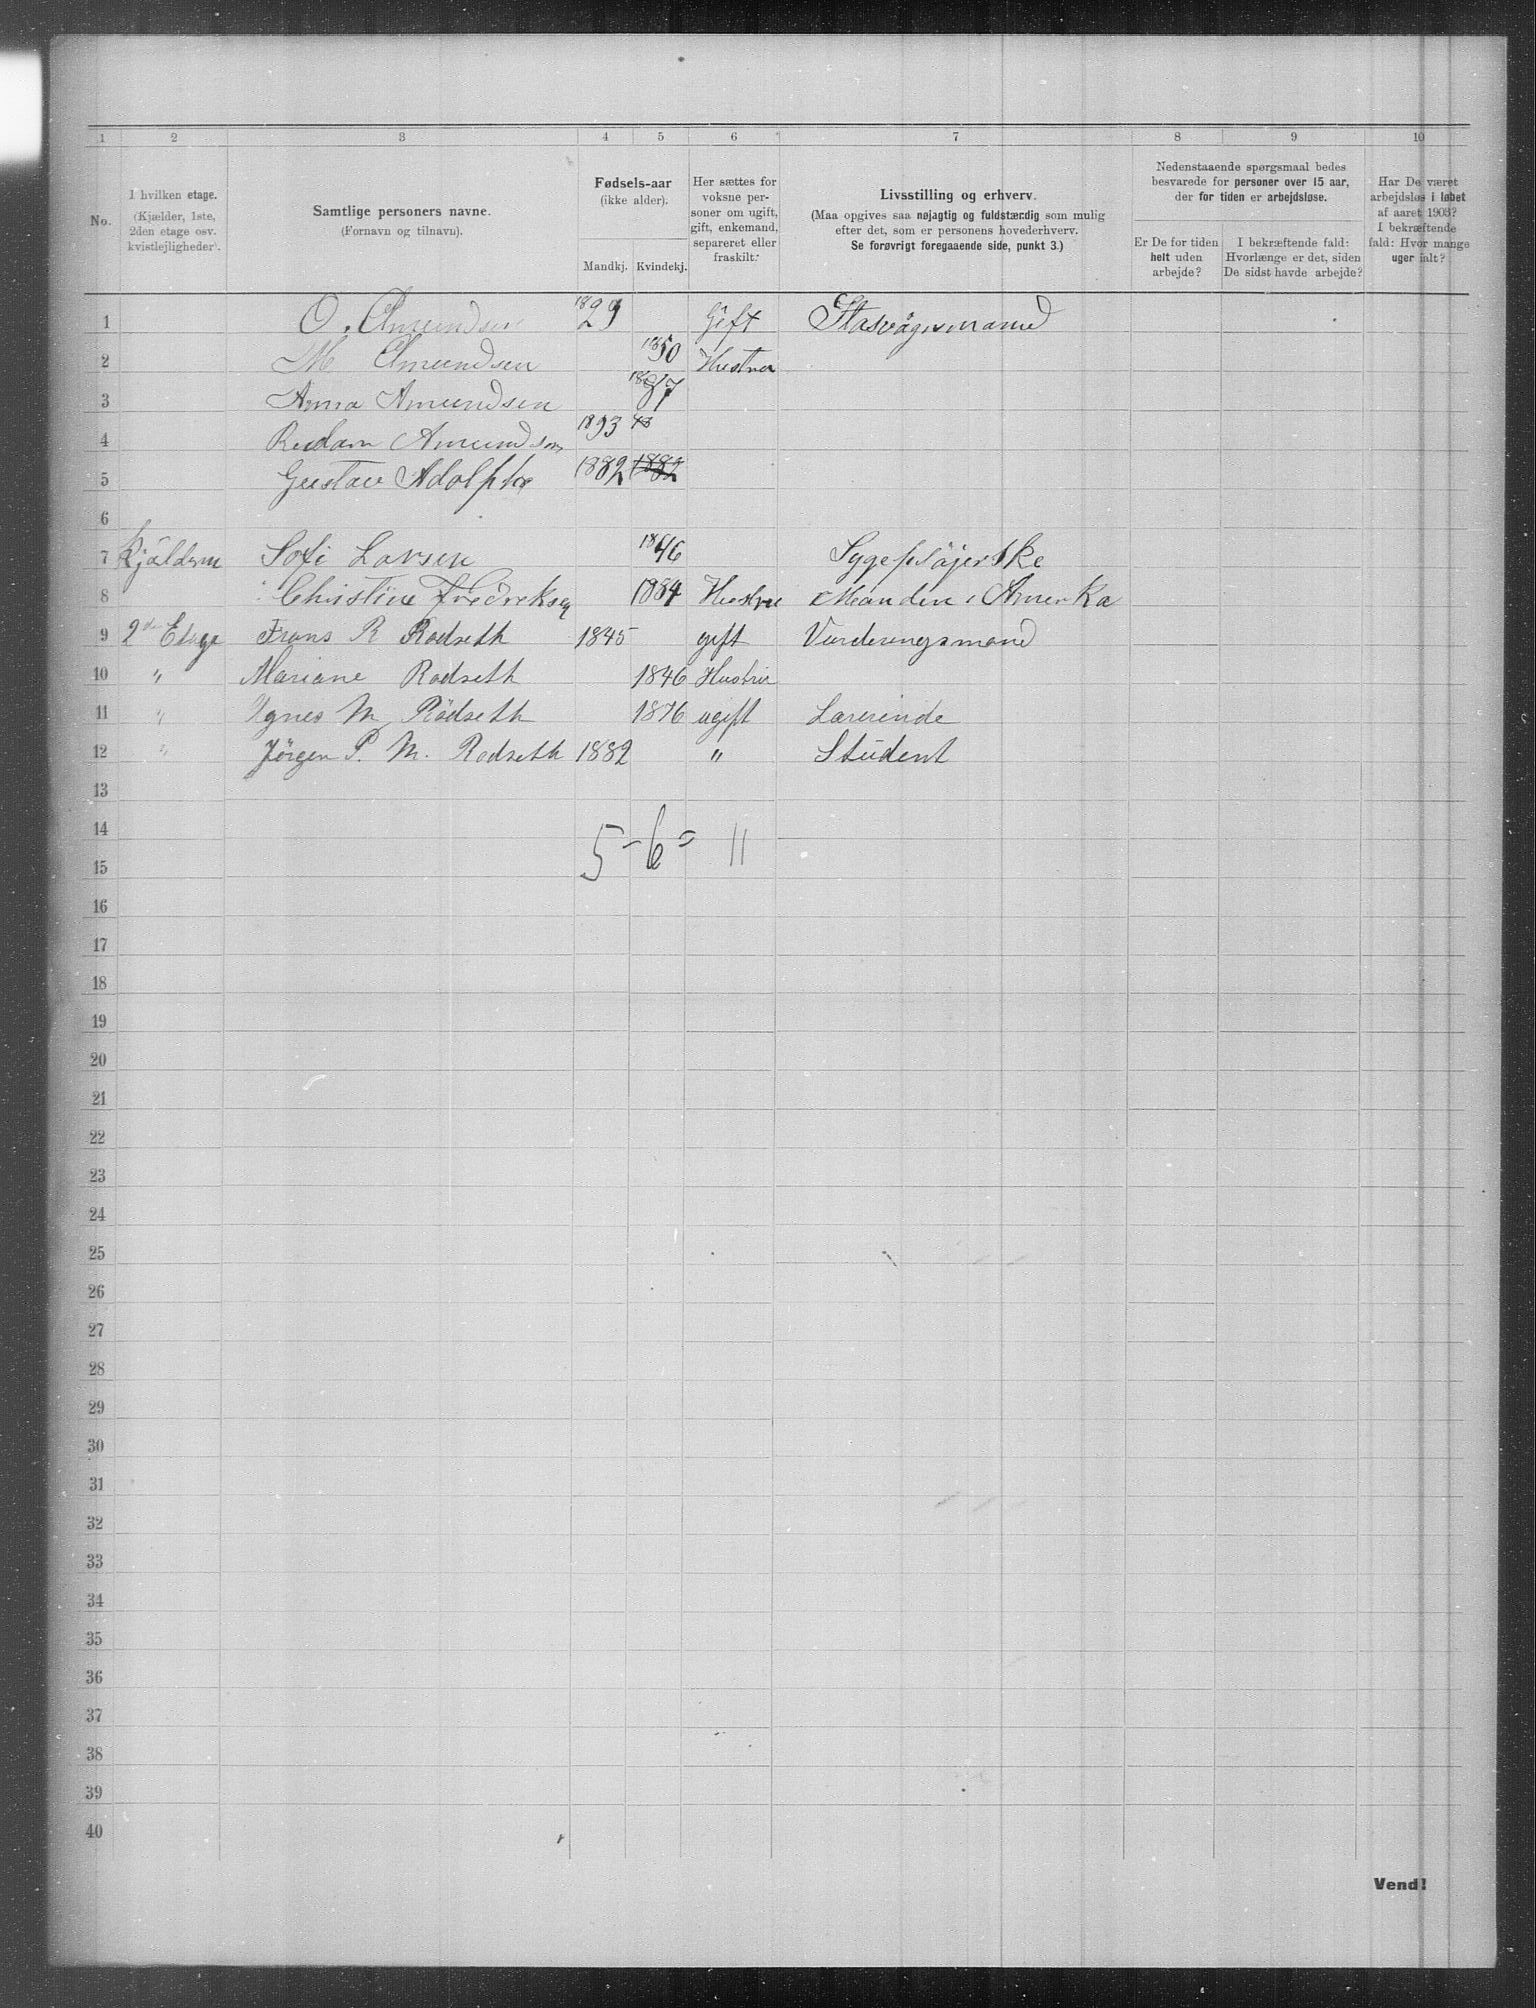 1 2 3 4 5 6 7 8 9 10
No.
I hvilken etage.
(Kjælder, 1ste,
2den etage osv.
kvistlejligheder).
Samtlige personers navne.
(Fornavn og tilnavn).
Fødsels-aar
(ikke alder).
Mandkj. Kvindekj.
Her sættes for
voksne per-
soner om ugift,
gift, enkemand,
separeret eller
fraskilt.
Livsstilling og erhverv.
(Maa opgives saa nøjagtig og fuldstærdig som mulig
efter det, som er personens hovederhverv.
Se forøvrigt foregaaende side, punkt 3.)
Nedenstaaende spørgsmaal bedes
besvarede for personer over 15 aar,
der for tiden er arbejdsløse.
Er De for tiden
helt uden
arbejde?
I bekræftende fald:
Hvorlænge er det, siden
De sidst havde arbejde?
Har De været
arbejdsløs i løbet
af aaret 1903?
I bekræftende
fald: Hvor mange
uger ialt?
1 O. Amundsen 1829 Gift
2 M Amundsen 1850 Hustru
3 Anna Amundsen 1887
4 Amundsen 1893
5 Gustav Adolph 1882 1882
6
7 Kjäldern Sofi Larsen 1846 Sygepläjerske
8 Christine Fredreksen 1884 Hustru Manden i Amerka
9 2den Etage Frans R Rodseth 1845 gift Vurderingsmand
10 " Mariane Rodseth 1846 Hustru
11 " Agnes M Rödseth 1876 ugift Lærerinde
12 " Jörgen P. M. Rodseth 1882 " Student
13
14
5 - 6 = 11
15
16
17
18
19
20
21
22
23
24
25
26
27
28
29
30
31
32
33
34
35
36
37
38
39
40
Vend!